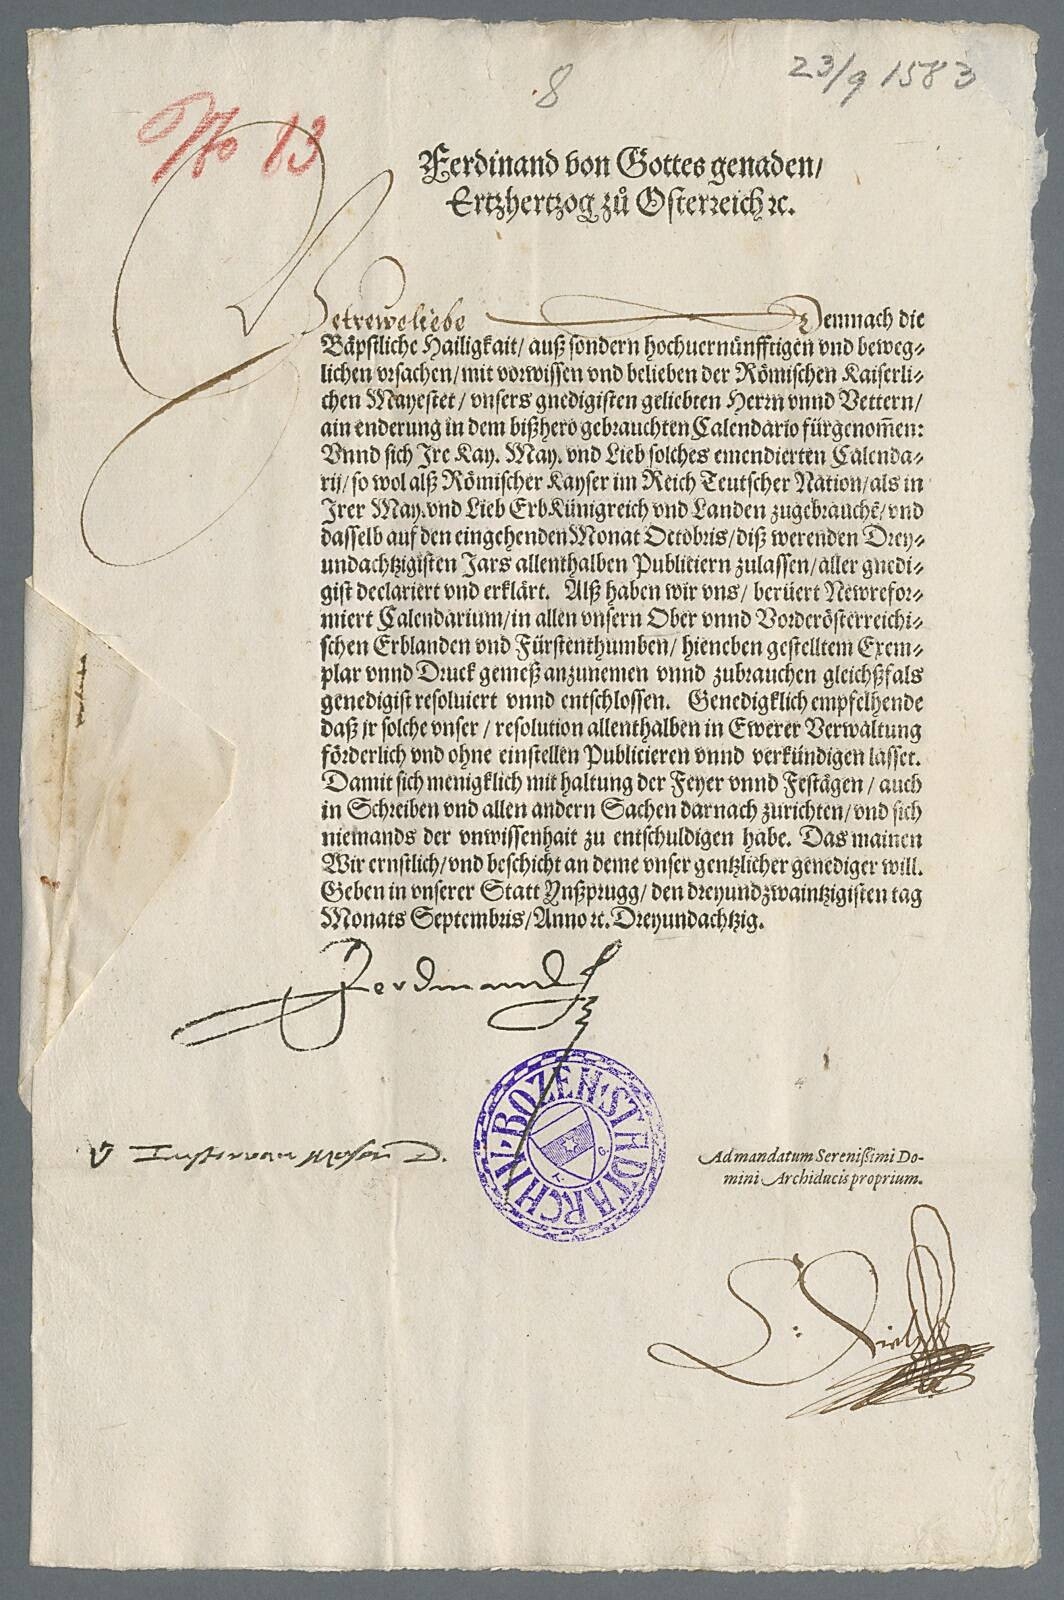 8
23/9 1583
No 13
Ferdinand von Gottes genaden/
Ertzhertzog zů Osterreich ꝛc.
Getrewe liebe Demnach die
Bäpstliche Hailigkait/ auß sondern hochuernünfftigen vnd beweg⸗
lichen vrsachen/ mit vorwissen vnd belieben der Römischen Kaiserli⸗
chen Mayestet/ vnsers gnedigisten geliebten Herrn vnnd Vettern/
ain enderung in dem bißhero gebrauchten Calendario fürgenom̄en:
Vnnd sich Ire Kay. May. vnd Lieb solches emendierten Calenda⸗
rij/ so wol alß Römischer Kayser im Reich Teutscher Nation/ als in
Irer May. vnd Lieb ErbKünigreich vnd Landen zugebrauchē/ vnd
dasselb auf den eingehenden Monat Octobris/ diß werenden Drey⸗
undachtzigisten Jars allenthalben Publiciern zulassen/ aller gnedi⸗
gist declariert vnd erklärt. Alß haben wir vns/ berüert Newrefor⸗
miert Calendarium/ in allen vnsern Ober vnnd Vorderösterreichi⸗
schen Erblanden vnd Fürstenthumben/ hieneben gestelltem Exem⸗
plar vnnd Druck gemeß anzunemen vnnd zubrauchen gleichßfals
genedigist resoluiert vnnd entschlossen. Genedigklich empfelhende
daß jr solche vnser/ resolution allenthalben in Ewerer Verwaltung
förderlich vnd ohne einstellen Publicieren vnnd verkündigen lasset.
Damit sich menigklich mit haltung der Feyer vnnd Festägen/ auch
in Schreiben vnd allen andern Sachen darnach zurichten/ vnd sich
niemands der vnwissenhait zu entschuldigen habe. Das mainen
Wir ernstlich/ vnd beschicht an deme vnser gentzlicher genediger will.
Geben in vnserer Statt Ynßprugg/ den dreyundzwaintzigisten tag
Monats Septembris/ Anno ꝛc. Dreyundachtzig.
Ferdinand
STADTARCHIV BOZEN
Ad mandatum Sereniſſimi Do-
mini Archiducis proprium.